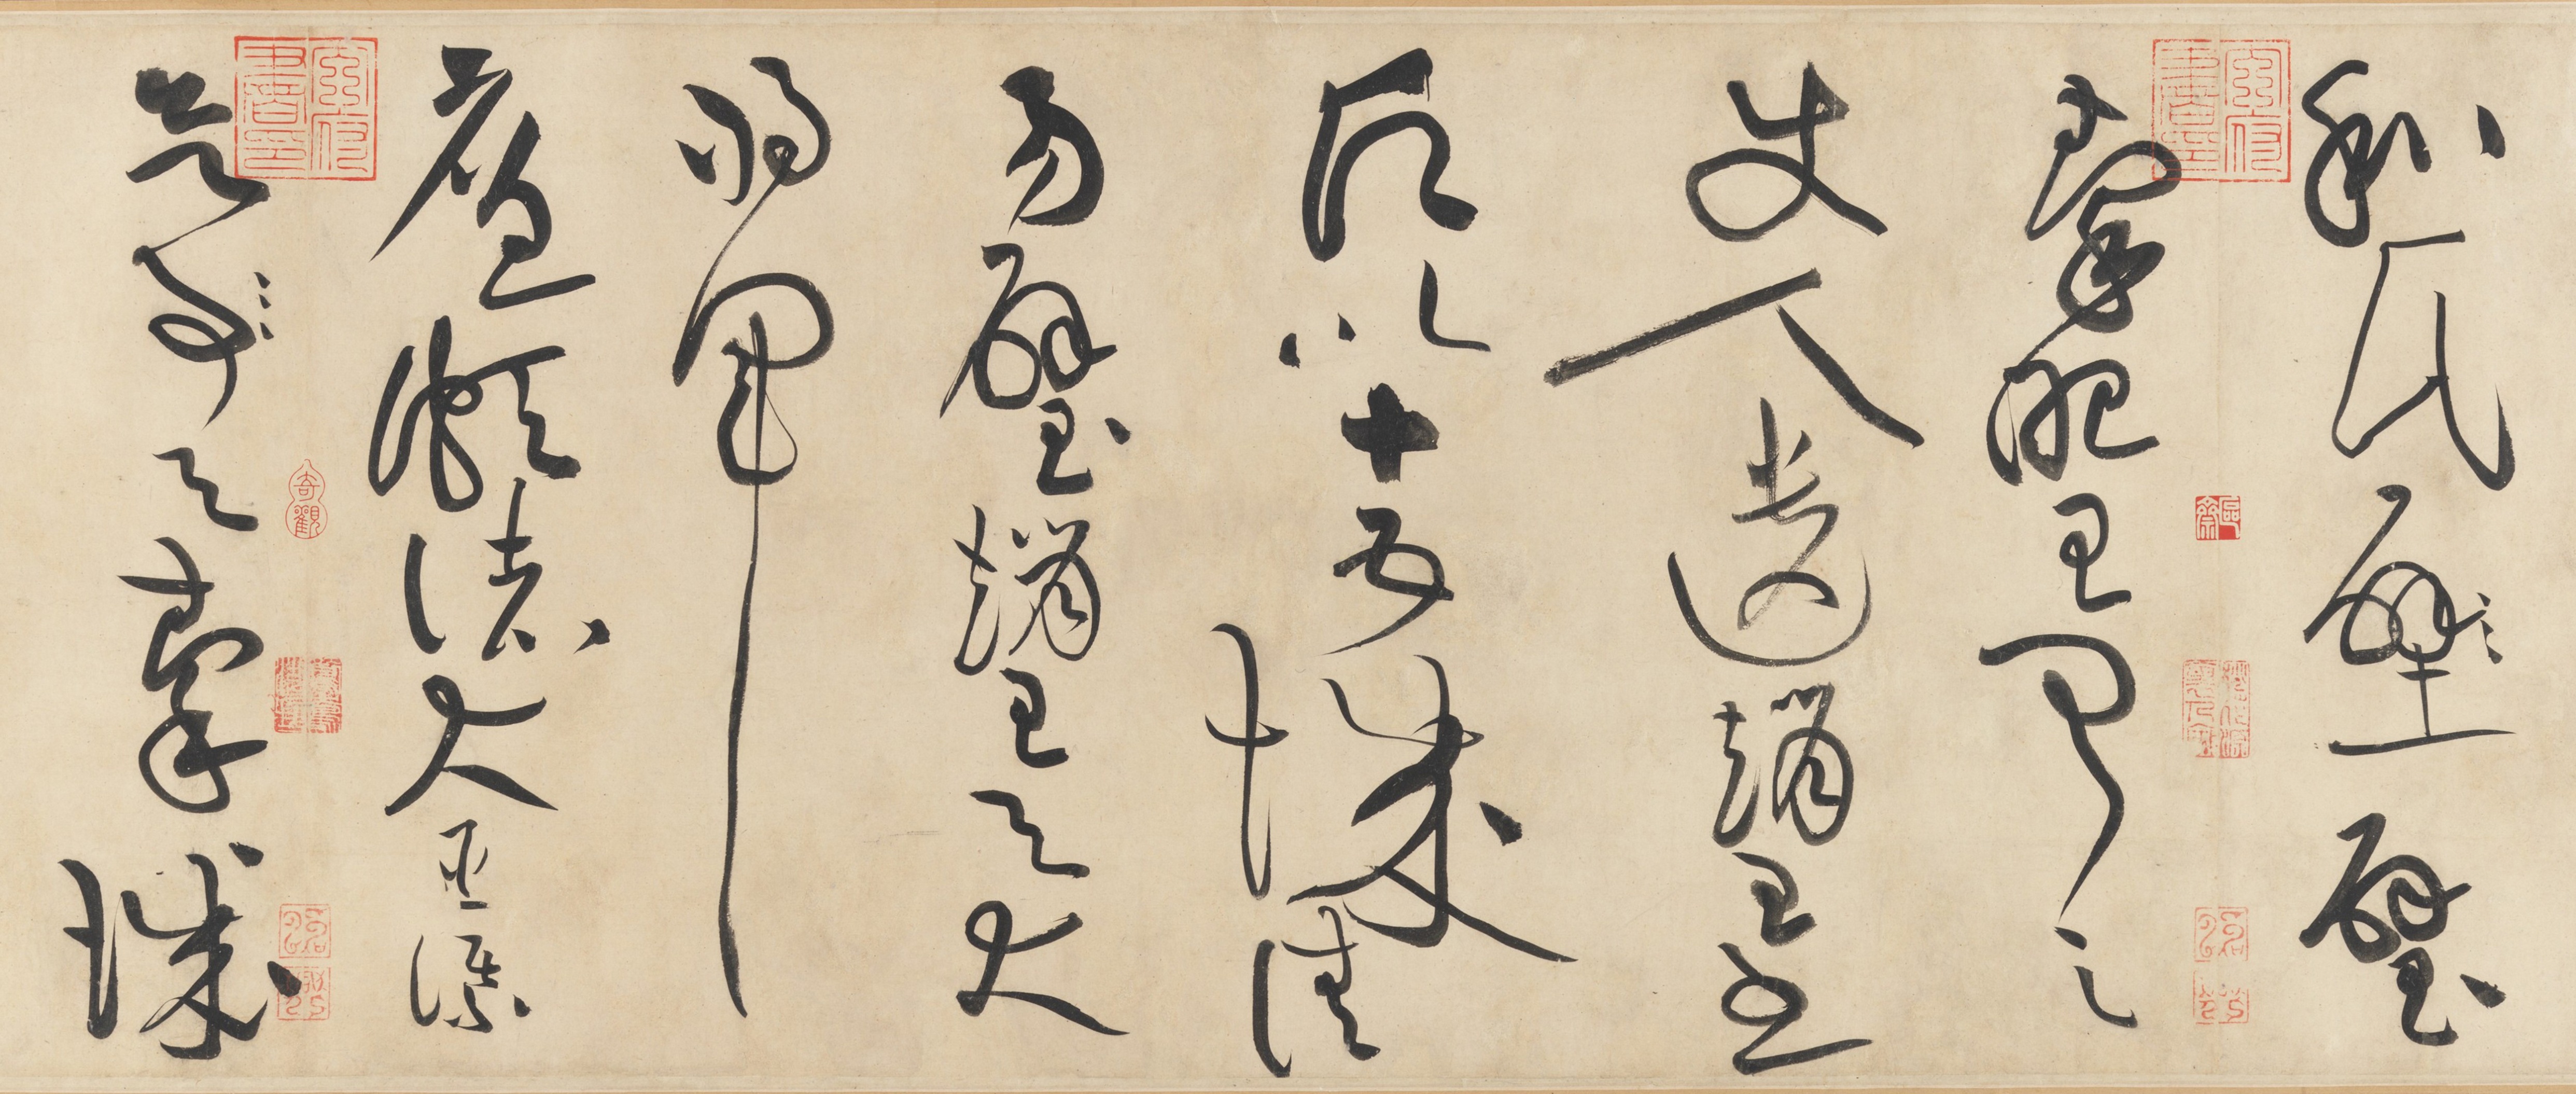 和氏壁璧
秦昭王聞之
使人遺趙王書
願以十五城請
易璧趙王與大
將軍
廉頗諸大臣謀
與秦城
奇觀